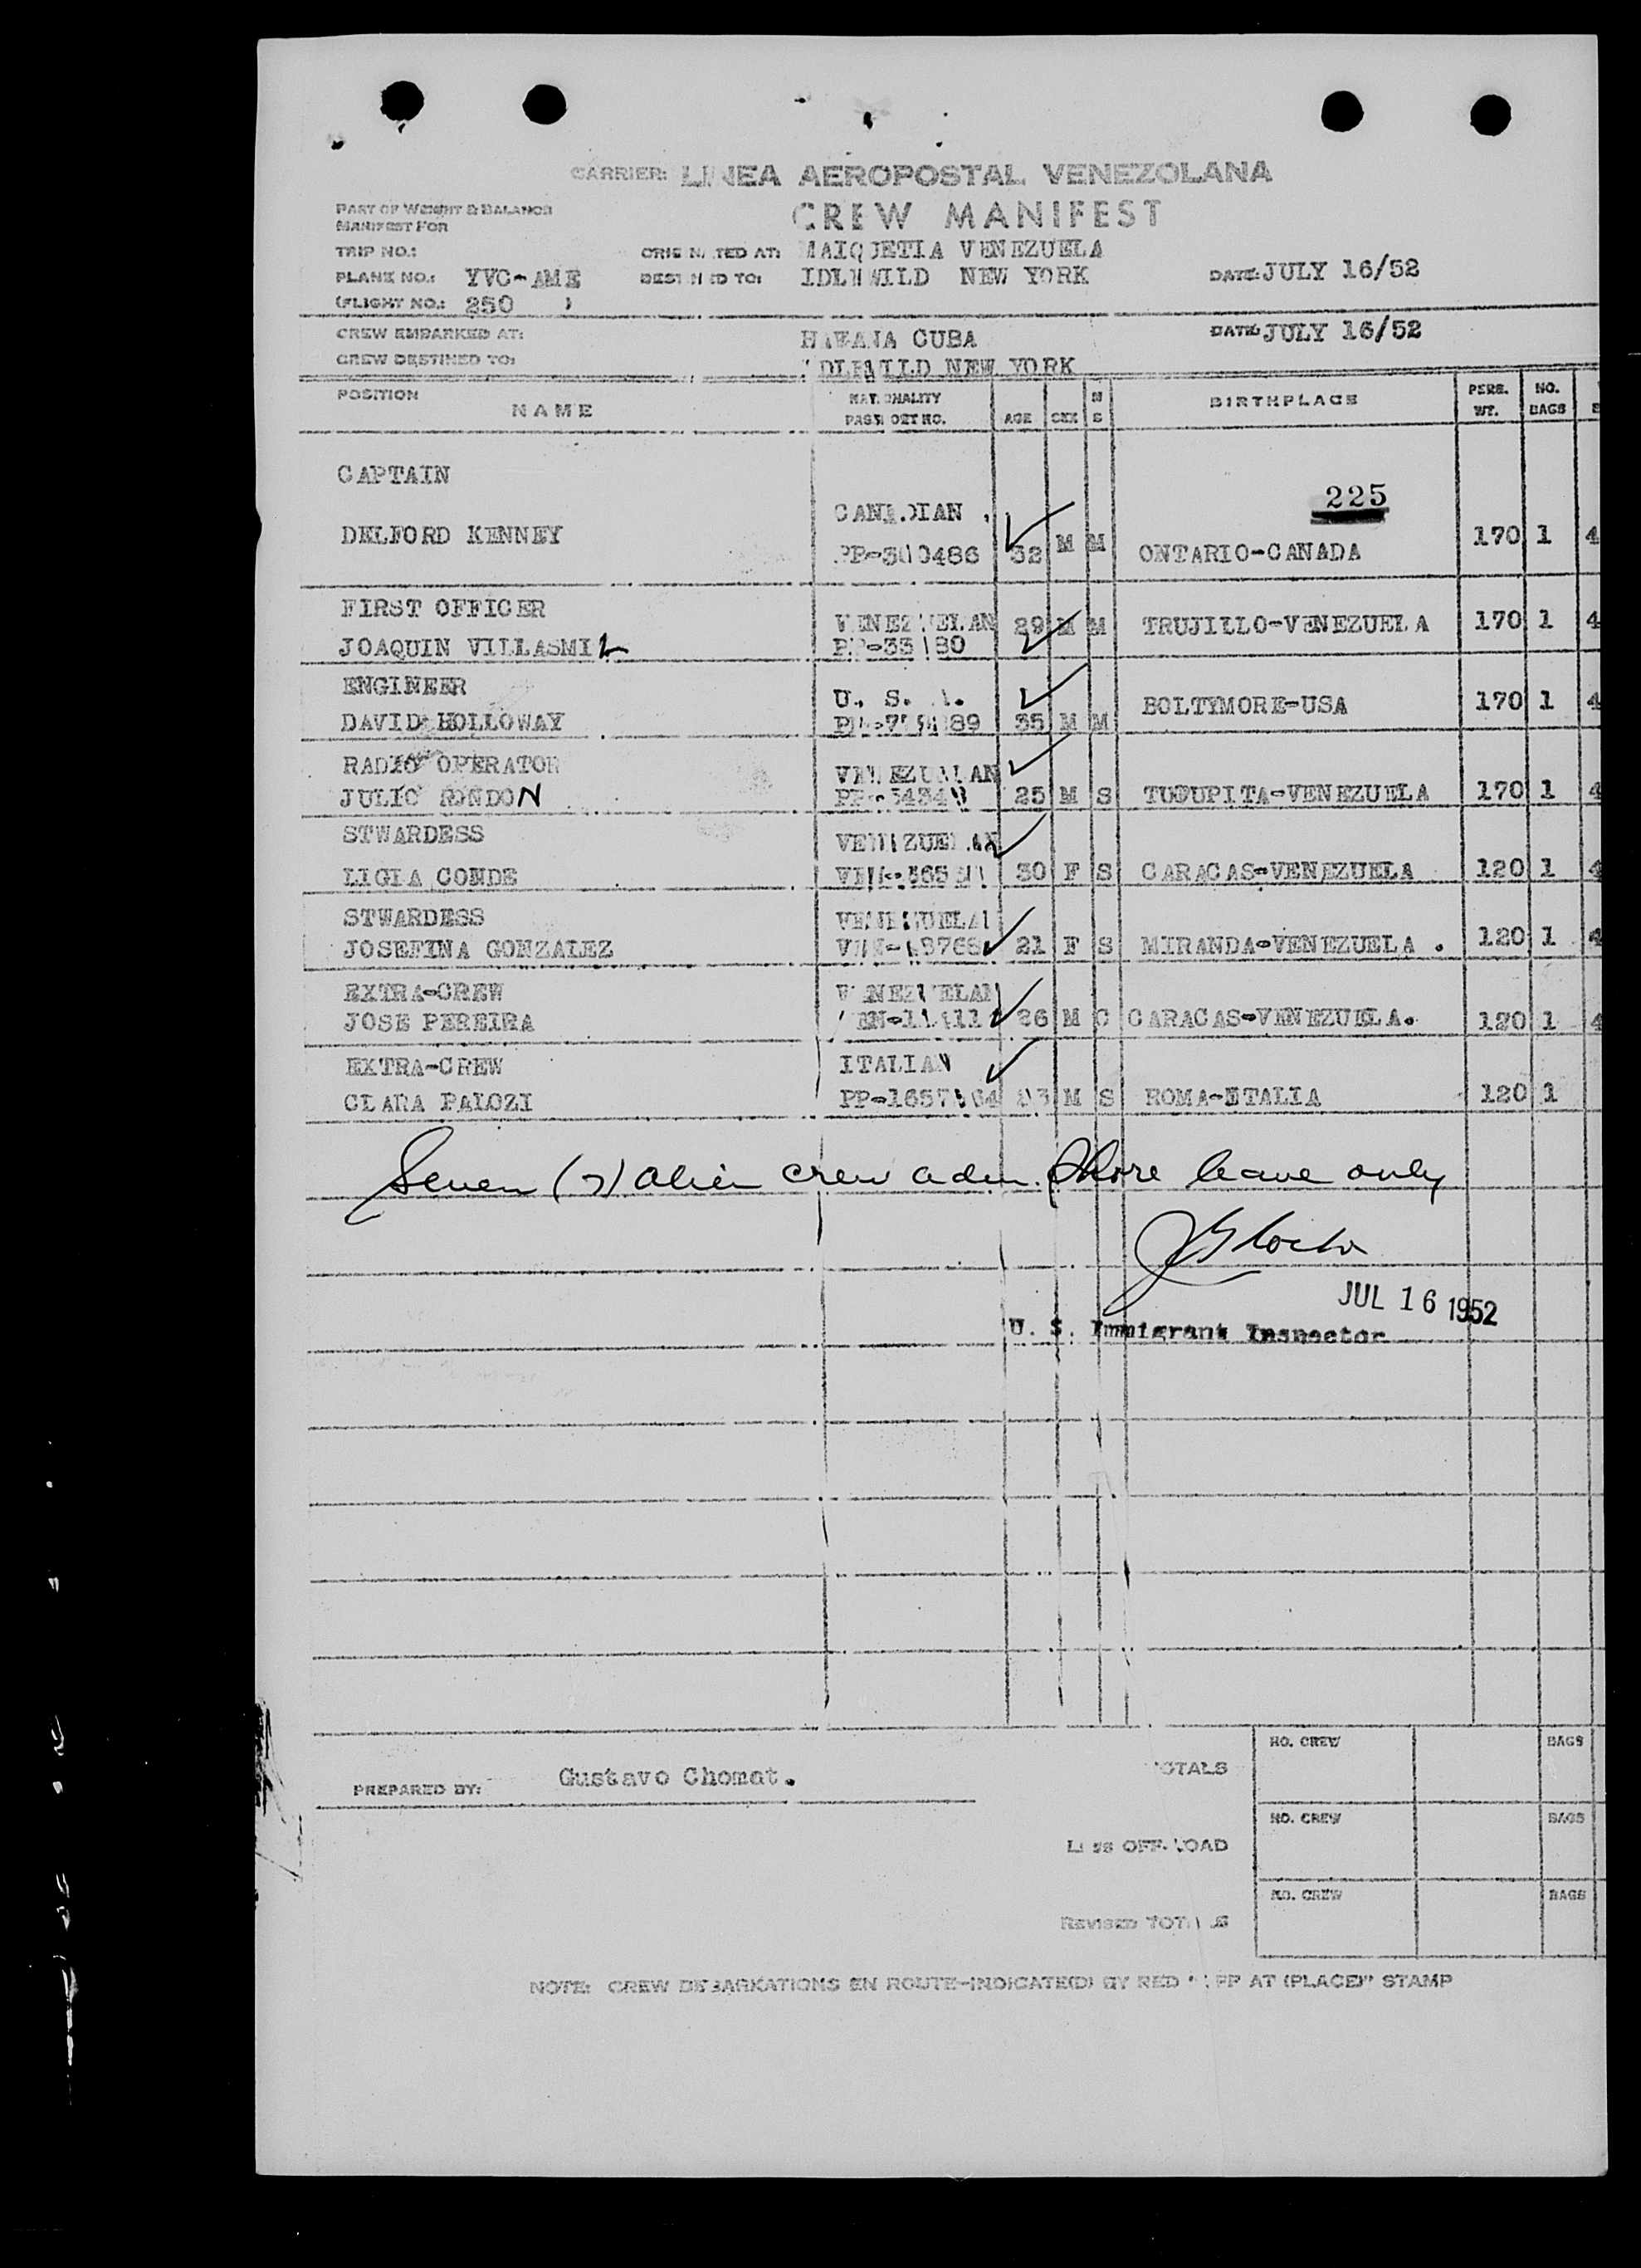 CARRIER: LINEA AEROPOSTAL VENEZOLANA
PART OF WEIGHT & BALANCE
MANIFEST FOR
CREW MANIFEST
TRIP NO.: ORIGINATED AT: MAIQUETIA VENEZUELA
PLANE NO.: YVC-AME DESTINED TO: IDLEWILD NEW YORK DATE: JULY 16/52
(FLIGHT NO.: 250 )
CREW EMBARKED AT: HAVANA CUBA DATE: JULY 16/52
CREW DESTINED TO: IDLEWILD NEW YORK
POSITION NATIONALITY M BIRTHPLACE PERS. NO.
NAME PASSPORT NO. AGE SEX S WT. BAGS
CAPTAIN
225
CANADIAN
DELFORD KENNEY 32 M M ONTARIO-CANADA 170 1 4
FIRST OFFICER VENEZUELAN 29 M M TRUJILLO-VENEZUELA 170 1 4
JOAQUIN VILLASMIL
ENGINEER U. S. A. BOLTYMORE-USA 170 1 4
DAVID HOLLOWAY 35 M M
RADIO OPERATOR
JULIO RONDON 25 M S TUCUPITA-VENEZUELA 170 1 4
STWARDESS VENEZUELAN
LIGIA CONDE 30 F S CARACAS-VENEZUELA 120 1 4
STWARDESS VENEZUELAN
JOSEFINA GONZALEZ 21 F S MIRANDA-VENEZUELA . 120 1 4
EXTRA-CREW VENEZUELAN
JOSE PEREIRA 26 M C CARACAS-VENEZUELA. 120 1 4
EXTRA-CREW ITALIAN
CLARA PALOZI M S ROMA-ETALIA 120 1
Seven (7) alien crew adm. Shore leave only
JUL 16 1952
U. S. Immigrant Inspector
NO. CREW BAGS
PREPARED BY: Gustavo Chomat. TOTALS
NO. CREW BAGS
LESS OFF-LOAD
NO. CREW BAGS
REVISED TOTALS
NOTE: CREW DEBARKATIONS EN ROUTE-INDICATE(D) BY RED AT (PLACE)" STAMP